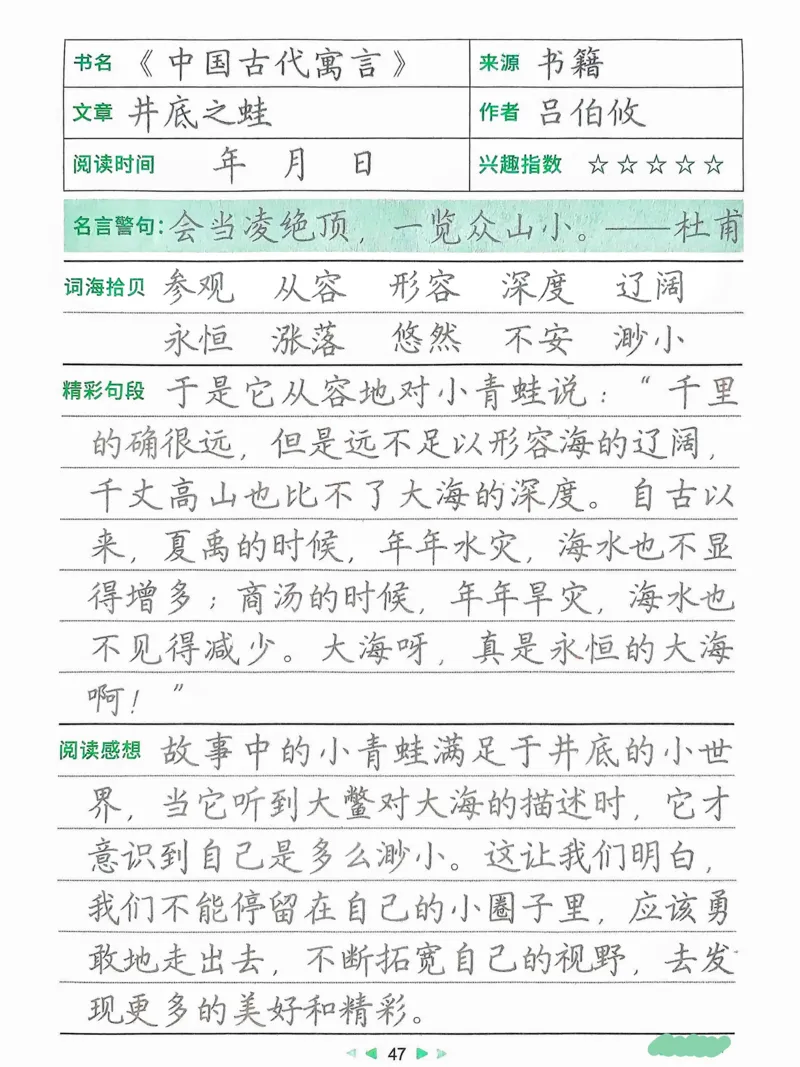 书名 《中国古代寓言》 来源 书籍
文章 井底之蛙 作者 吕伯攸
阅读时间 年 月 日 兴趣指数 ☆☆☆☆☆
名言警句：会当凌绝顶，一览众山小。——杜甫
词海拾贝 参观 从容 形容 深度 辽阔
永恒 涨落 悠然 不安 渺小
精彩句段 于是它从容地对小青蛙说：“千里
的确很远，但是远不足以形容海的辽阔，
千丈高山也比不了大海的深度。自古以
来，夏禹的时候，年年水灾，海水也不显
得增多；商汤的时候，年年旱灾，海水也
不见得减少。大海呀，真是永恒的大海
啊！”
阅读感想 故事中的小青蛙满足于井底的小世
界，当它听到大鳖对大海的描述时，它才
意识到自己是多么渺小。这让我们明白，
我们不能停留在自己的小圈子里，应该勇
敢地走出去，不断拓宽自己的视野，去发
现更多的美好和精彩。
47